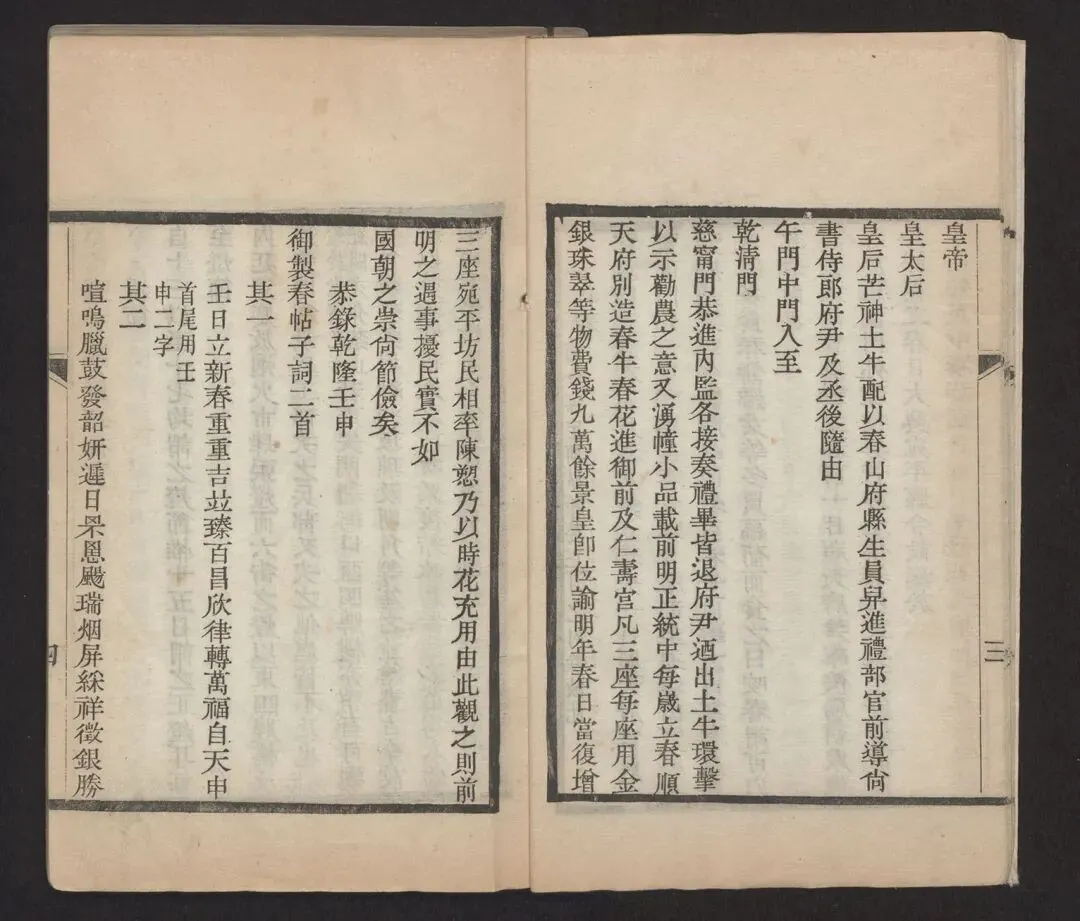 皇帝
皇太后
皇后芒神土牛配以春山府縣生員舁進禮部官前導尙
書侍郎府尹及丞後隨由
午門中門入至
乾清門
慈甯門恭進內監各接奏禮畢皆退府尹迺出土牛環擊
以示勸農之意又湧幢小品載前明正統中每歲立春順
天府別造春牛春花進御前及仁壽宮凡三座每座用金
銀珠翠等物費錢九萬餘景皇卽位諭明年春日當復增
三
三座宛平坊民相率陳愬乃以時花充用由此觀之則前
明之遇事擾民實不如
國朝之崇尙節儉矣
恭錄乾隆壬申
御製春帖子詞二首
其一
壬日立新春重重吉竝臻百昌欣律轉萬福自天申
首尾用壬
申二字
其二
喧鳴臘鼓發韶妍遲日罘罳颺瑞烟屏綵祥徵銀勝
四